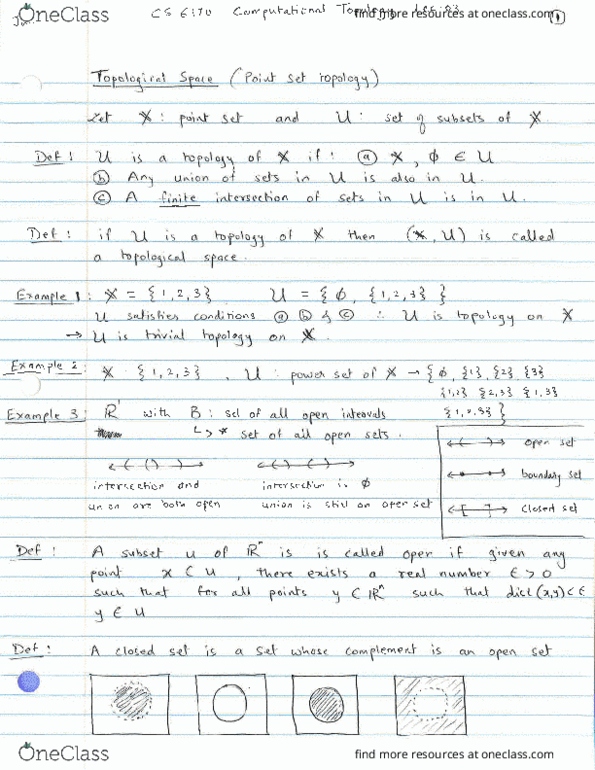 OneClass
find more resources at oneclass.com
CS 6170 Computational Topology
1
Topological Space (Point set topology)
Let X : point set and U : set of subsets of X.
Def : U is a topology of X if : (a) X, ϕ ∈ U
(b) Any union of sets in U is also in U.
(c) A finite intersection of sets in U is in U.
Def : if U is a topology of X then (X, U) is called
a topological space.
Example 1 : X = {1, 2, 3} U = {ϕ, {1, 2, 3} }
U satisfies conditions (a) (b) & (c) ∴ U is topology on X
→ U is trivial topology on X.
Example 2 : X : {1, 2, 3} , U : power set of X → {ϕ, {1} {2} {3}
{1,2} {2,3} {1,3}
{1,2,3} }
Example 3 : ℝ¹ with B : set of all open intervals
↳ * set of all open sets.
open set
boundary set
closed set
intersection and
union are both open
intersection is ϕ
union is still an open set
Def : A subset u of ℝⁿ is is called open if given any
point x ⊂ u , there exists a real number ϵ > 0
such that for all points y ⊂ ℝⁿ such that dist (x,y) < ϵ
y ∈ u
Def : A closed set is a set whose complement is an open set
OneClass
find more resources at oneclass.com